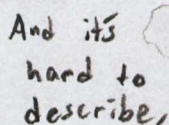 And it's
hard to
describe,